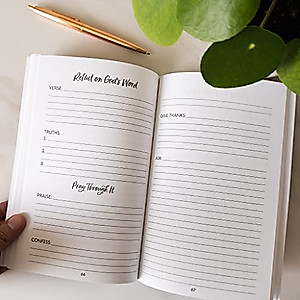 Reflect on God's Word
VERSE:
TRUTHS:
1.
2.
3.
Pray Through It
PRAISE:
CONFESS:
66
GIVE THANKS:
ASK:
67